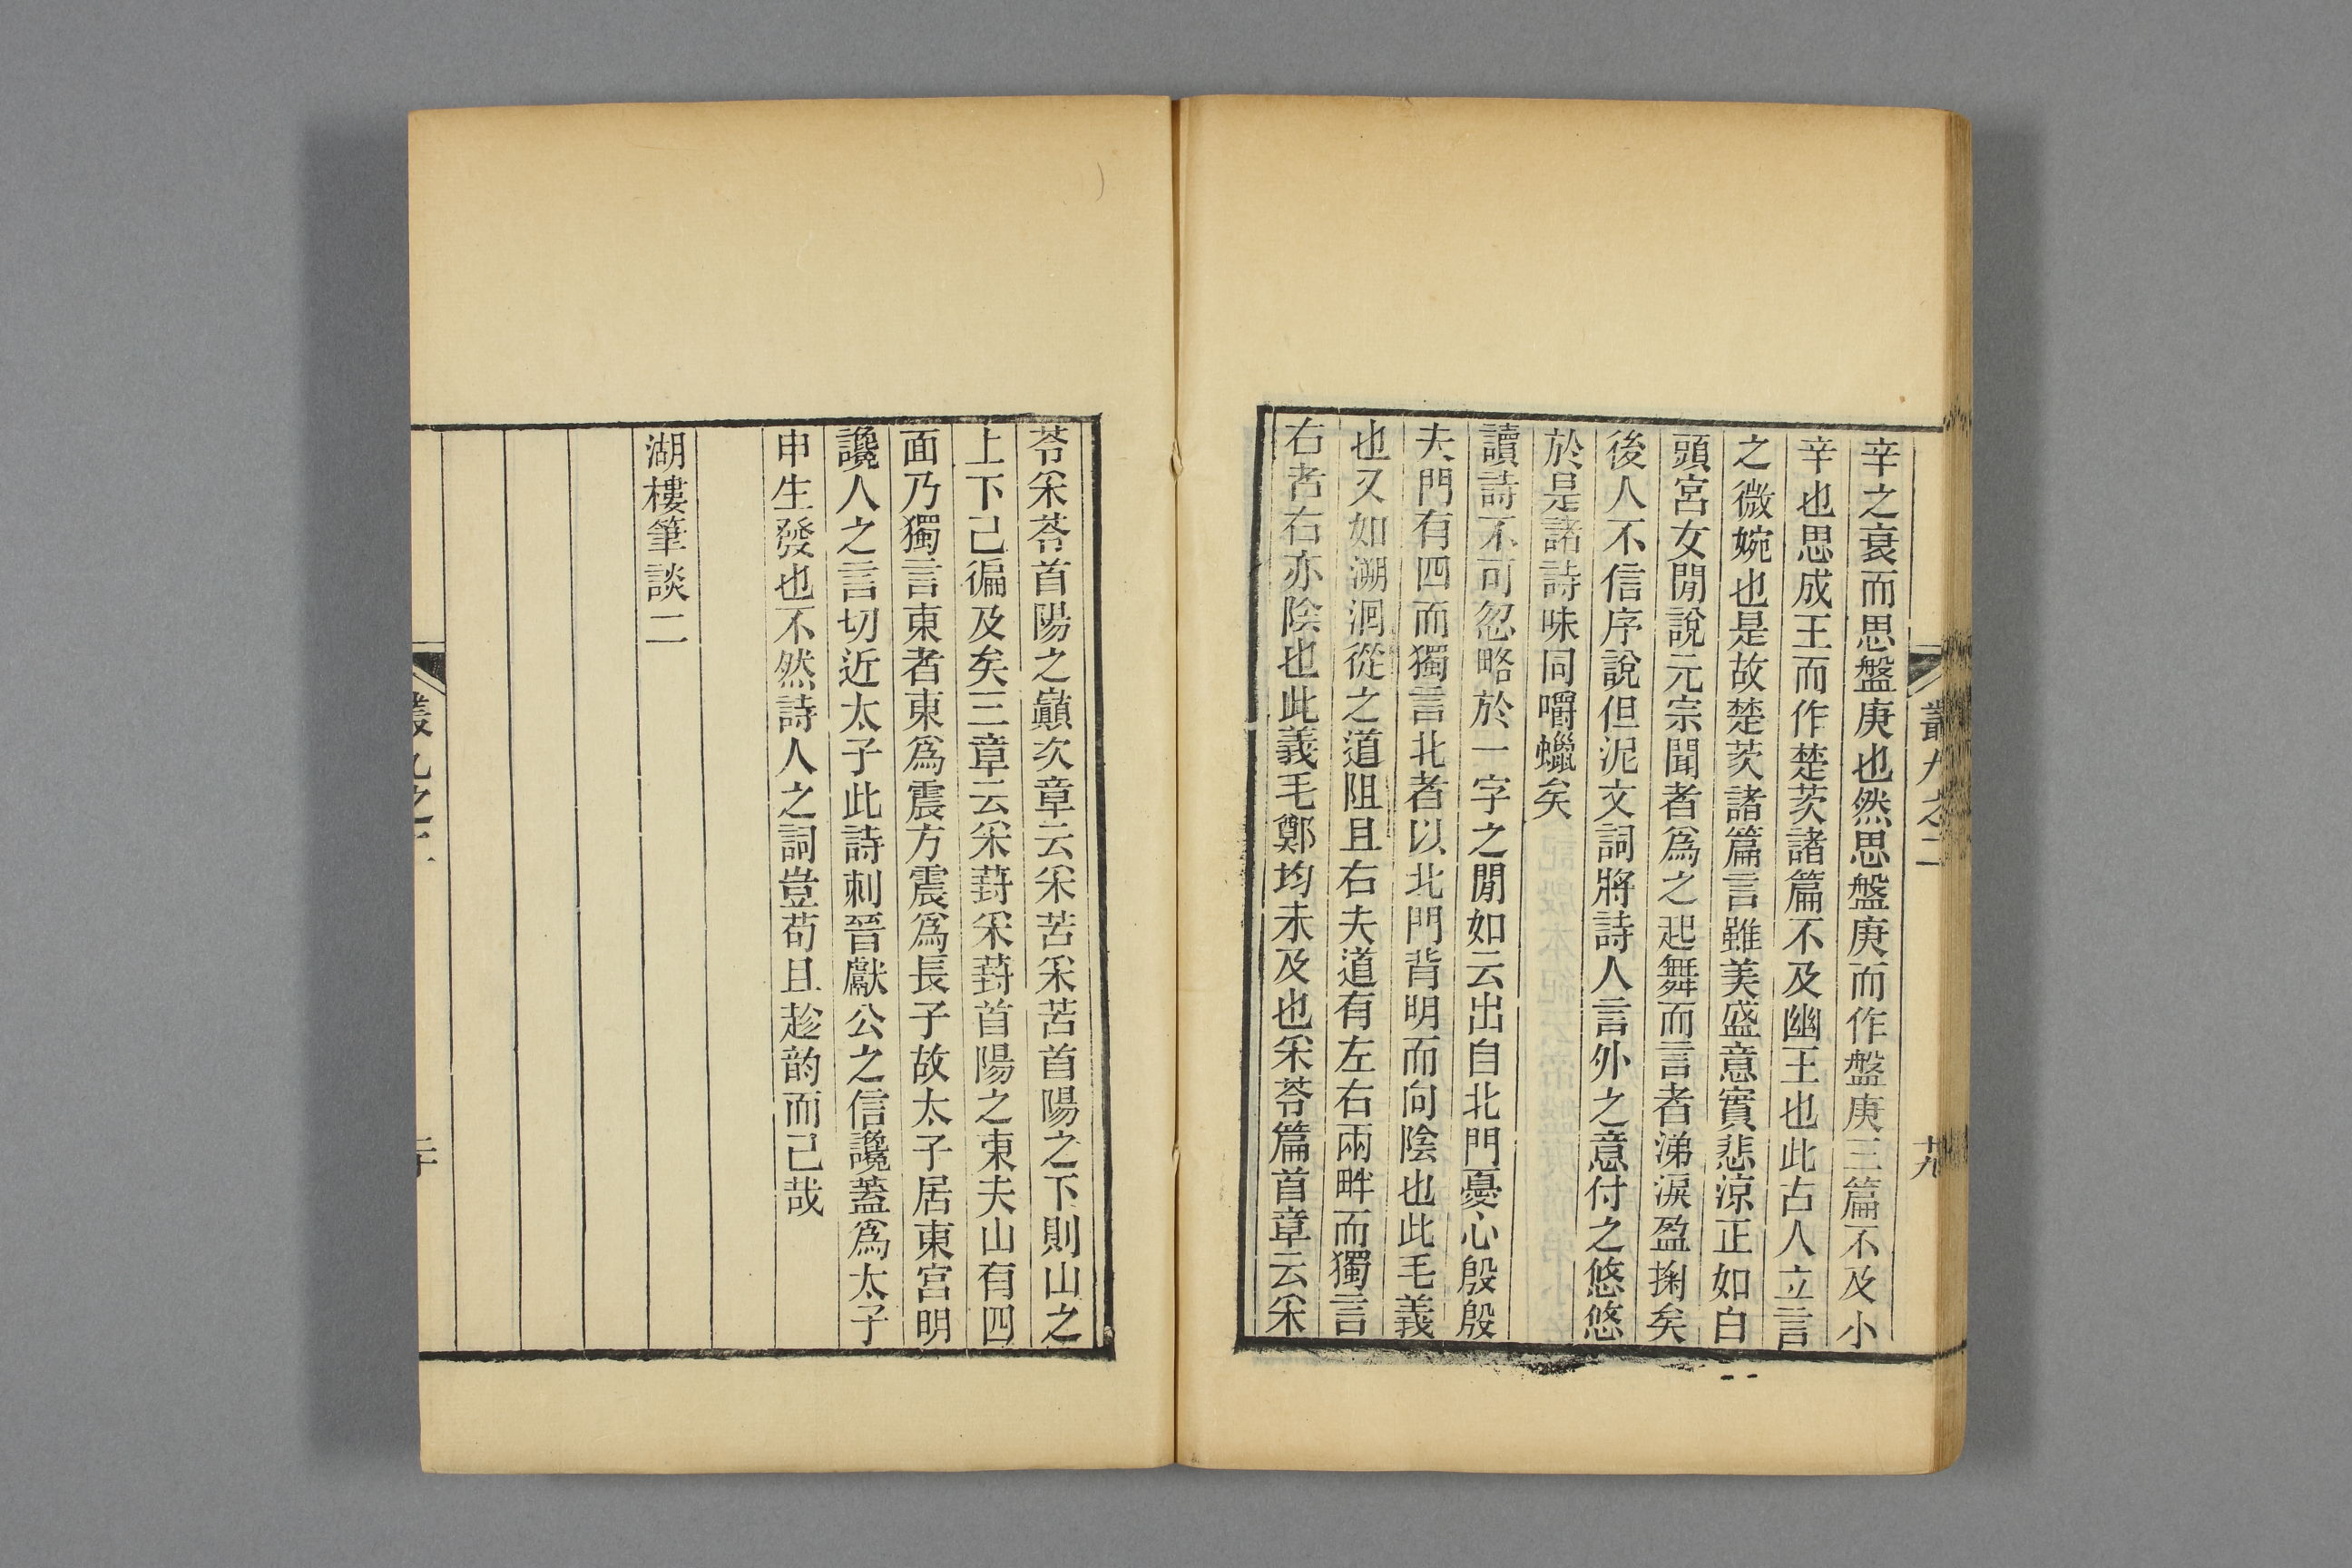 叢九之二
十九
辛之衰而思盤庚也然思盤庚而作盤庚三篇不及小
辛也思成王而作楚茨諸篇不及幽王也此古人立言
之微婉也是故楚茨諸篇言雖美盛意實悲涼正如白
頭宮女閒說元宗聞者爲之起舞而言者涕淚盈掬矣
後人不信序說但泥文詞將詩人言外之意付之悠悠
於是諸詩味同嚼蠟矣
讀詩不可忽略於一字之閒如云出自北門憂心殷殷
夫門有四而獨言北者以北門背明而向陰也此毛義
也又如溯洄從之道阻且右夫道有左右兩畔而獨言
右者右亦陰也此義毛鄭均未及也采苓篇首章云采
苓采苓首陽之巓次章云采苦采苦首陽之下則山之
上下已徧及矣三章云采葑采葑首陽之東夫山有四
面乃獨言東者東爲震方震爲長子故太子居東宮明
讒人之言切近太子此詩刺晉獻公之信讒蓋爲太子
申生發也不然詩人之詞豈苟且趁韵而已哉
湖樓筆談二